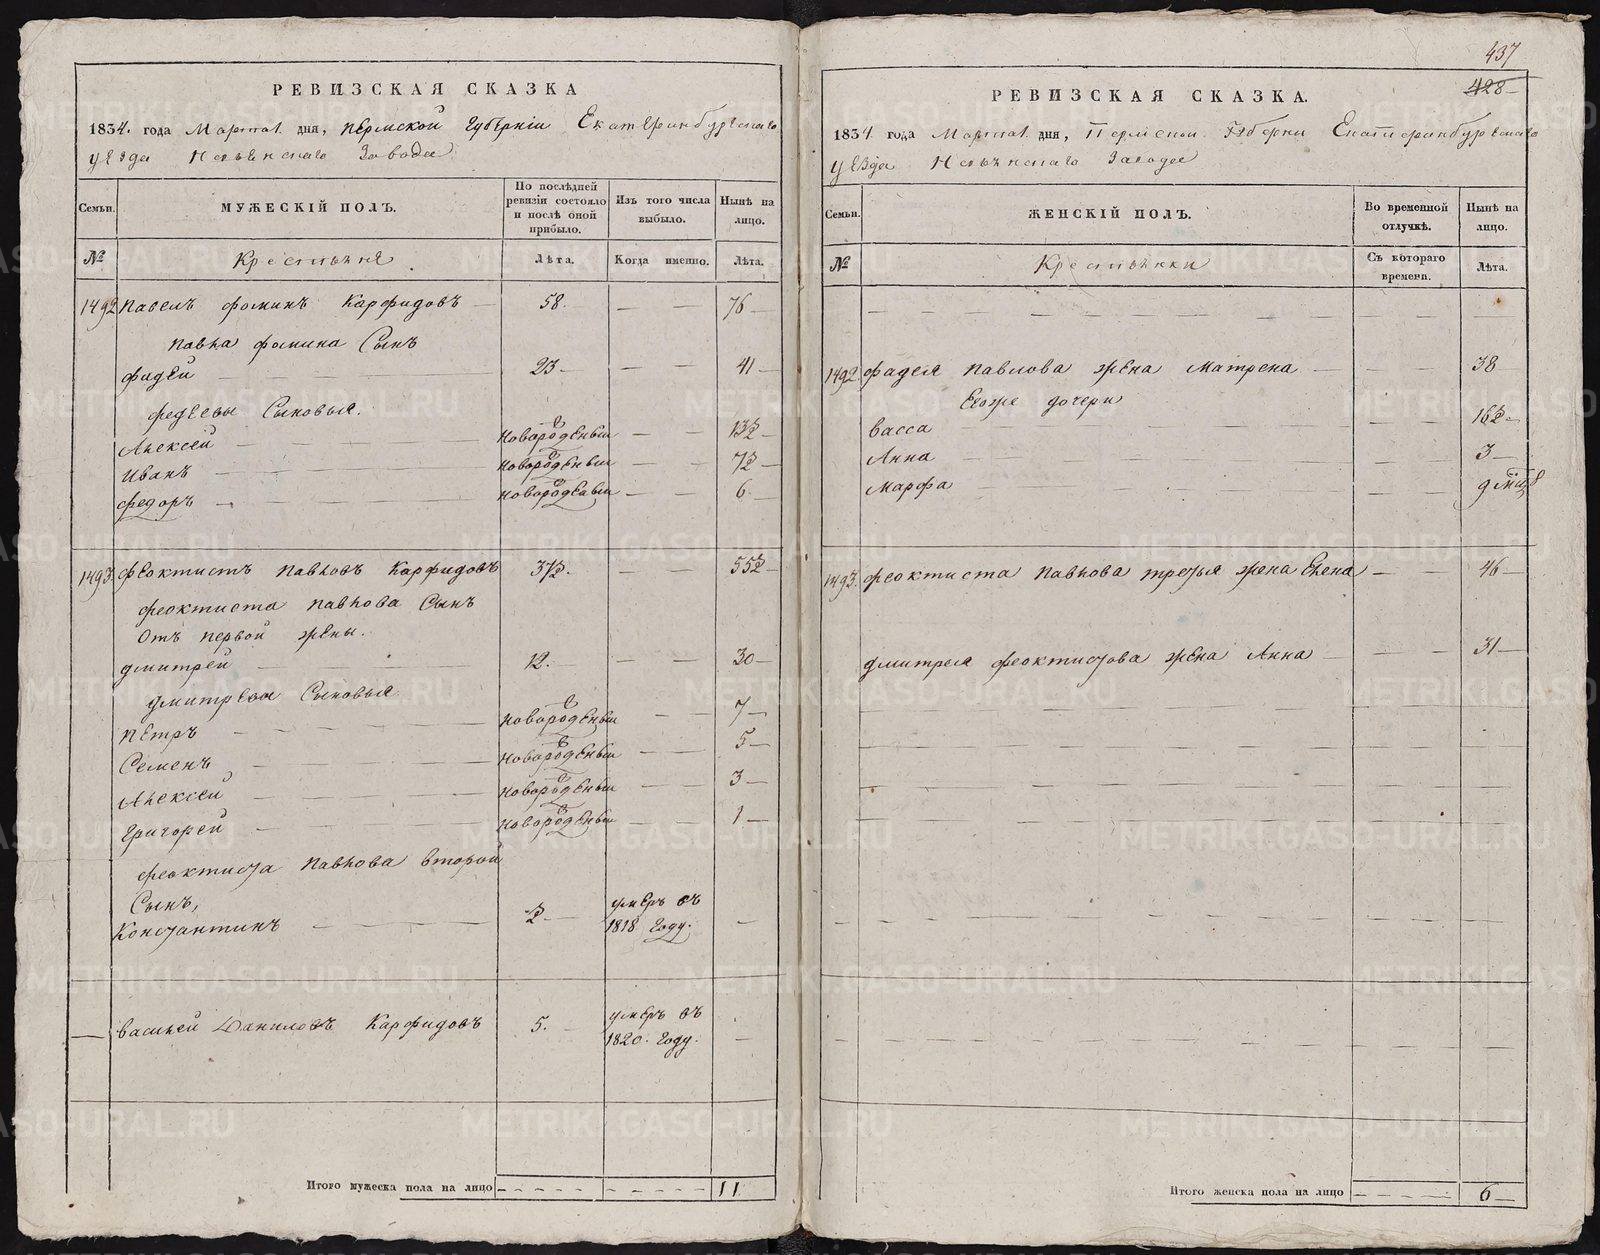 РЕВИЗСКАЯ СКАЗКА
1834. года Марта дня, Пермской Губернiи Екатеринбургскаго
уезда Невьенскаго Завода
Семьи.
МУЖЕСКІЙ ПОЛЪ.
По послѣдней ревизіи состояло и послѣ оной прибыло.
Изъ того числа выбыло.
Нынѣ на лицо.
№
Крестьяня
Лѣта.
Когда именно.
Лѣта.
1492 Павелъ Фоминъ Карфидовъ 58. 76
Павла Фомина Сынъ
Фидей 23 41
Федеевы Сыновья.
Алексей Новороденный 13½
Иванъ Новороденный 7½
Федоръ Новороденный 6
1493. Феоктистъ Павловъ Карфидовъ 37½. 55½
Феоктиста Павлова Сынъ
Отъ первой жены.
Дмитрей 12. 30
Дмитревы Сыновья
Петръ Новороденный 7
Семенъ Новороденный 5
Алексей Новороденный 3
Григорей Новороденный 1
Феоктиста Павлова второй
Сынъ,
Константинъ ½ умеръ въ 1818 Году.
Василей Даниловъ Карфидовъ 5. умеръ въ 1820. Году.
Итого мужеска пола на лицо 11
437
428
РЕВИЗСКАЯ СКАЗКА.
1834. года Марта дня, Пермской Губерни Екатеринбургскаго
уезда Невьянскаго Завода
Семьи.
ЖЕНСКІЙ ПОЛЪ.
Во временной отлучкѣ.
Нынѣ на лицо.
№
Крестьянки
Съ котораго времени.
Лѣта.
1492 Фадея Павлова жена Матрена 38
Еёже дочери
Васса 16½
Анна 3
Марфа
1493. Феоктиста Павлова третья жена Елена 46
Дмитрея Феоктистова жена Анна 31
Итого женска пола на лицо 6
METRIKI.GASO-URAL.RU